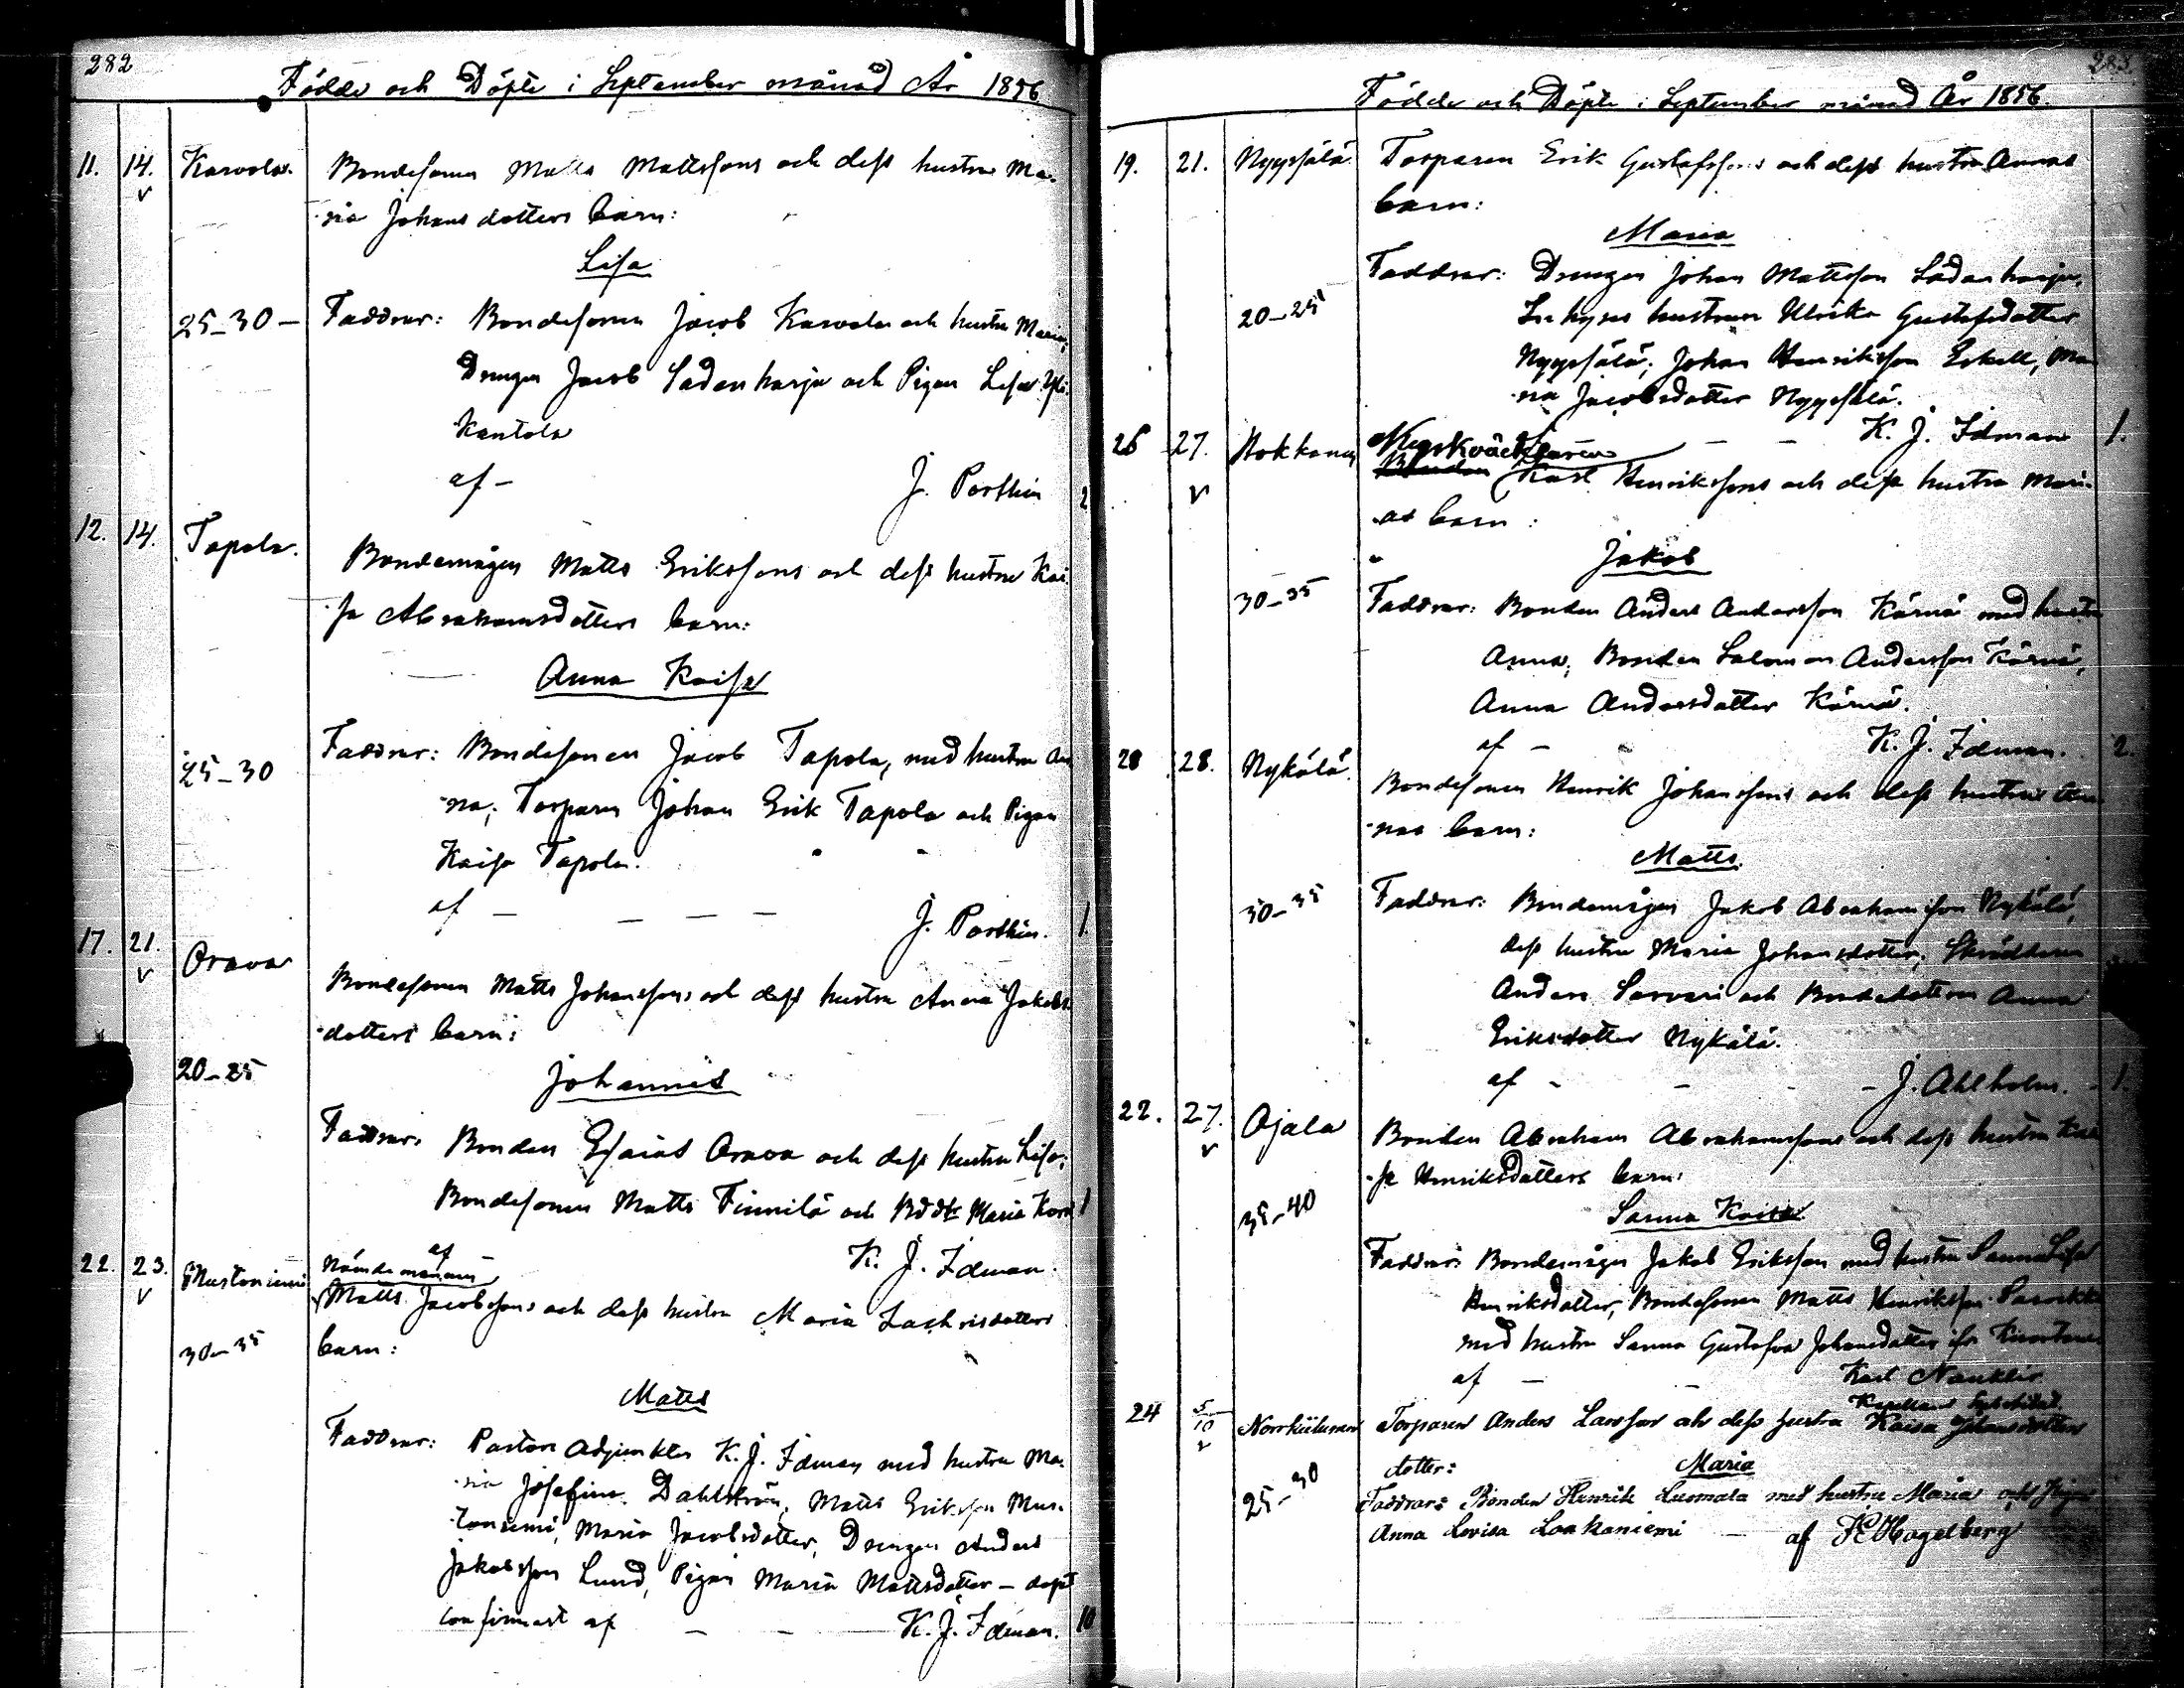 282
Födde och Döpte i September månad År 1856
11. 14. Karvola. Bondesonen Matts Mattssons och dess hustru Ma-
ria Johansdotters barn:
Lisa
25-30 - Faddrar: Bondesonen Jacob Karvola och hustru Maria,
Drengen Jacob Sadenharju och Pigan Lisa Yli-
Kantola
af - J. Porthin 2
12. 14. Tapola. Bondemågen Matts Erikssons och dess hustru Kai-
sa Abrahamsdotters barn:
Anna Kaisa
25-30 Faddrar: Bondesonen Jacob Tapola, med hustru An
na; Torparen Johan Erik Tapola och Pigan
Kaisa Tapola.
af - - - - J. Porthin. 1
17. 21. Orava Bondesonen Matts Johanssons och dess hustru Anna Jakobs
dotters barn:
20-25 Johannes
Faddrar: Bonden Esaias Orava och dess hustru Lisa;
Bondesonen Matts Finnilä och Bddtr Maria 1
af - K. J. Idman.
22. 23. Mustoniemi Nämdemannen
Matts Jacobssons och dess hustru Maria Zachrisdotters
30-35 barn:
Matts
Faddrar: Pastors Adjunkten K. J. Idman med hustru Ma-
ria Josefina Dahlström, Matts Eriksson Mus-
toniemi, Maria Jacobsdotter, Drengen Anders
Jakobsson Lund, Pigan Maria Mattsdotter - dopet
confirmert af - - K. J. Idman. 10
283.
Födde och Döpte i September månad År 1856.
19. 21. Nyyssälä Torparen Erik Gustafssons och dess hustru Annas
barn:
Maria
Faddrar: Drengen Johan Mattsson Sadenharju,
20-25 Inhyses hustrun Ulrika Gustafsdotter
Nyyssälä; Johan Henriksson Eskell, Ma
ria Jacobsdotter Nyyssälä.
- - K. J. Idman 1.
26 27. Hokkanen
Karl Henrikssons och dess hustru Mari-
as barn:
Jakob
30-35 Faddrar: Bonden Anders Andersson Kärnä med hustru
Anna; Bonden Salomon Andersson Kärnä,
Anna Andersdotter Kärnä.
af - K. J. Idman. 2.
28 28. Nykälä. Bondesonen Henrik Johanssons och dess hustrus An
nas barn:
Matts.
30-35 Faddrar: Bondemågen Jakob Abrahamsson Nykälä,
dess hustru Maria Johansdotter; Skräddaren
Anders Sarvari och Bondedottren Anna
Eriksdotter Nykälä.
af - - - - J. Ahlholm. - 1.
22. 27. Ojala Bonden Abraham Abrahamssons och dess hustru Kai
sa Henriksdotters barn:
35-40 Sanna Kaisa
Faddrar: Bondemågen Jakob Eriksson med hustru Sanna Lisa
Henriksdotter, Bondesonen Matts Henriksson
med hustru Sanna Gustafva Johansdotter ifr.
af - - Karl
24 5/10 Torparen Anders Larsson och dess hustru Kaisa Johansdotters
dotter: Maria
25-30 Faddrar: Bonden Henrik Luomala med hustru Maria och Pigan
Anna Lovisa Laakaniemi - af Hogelberg